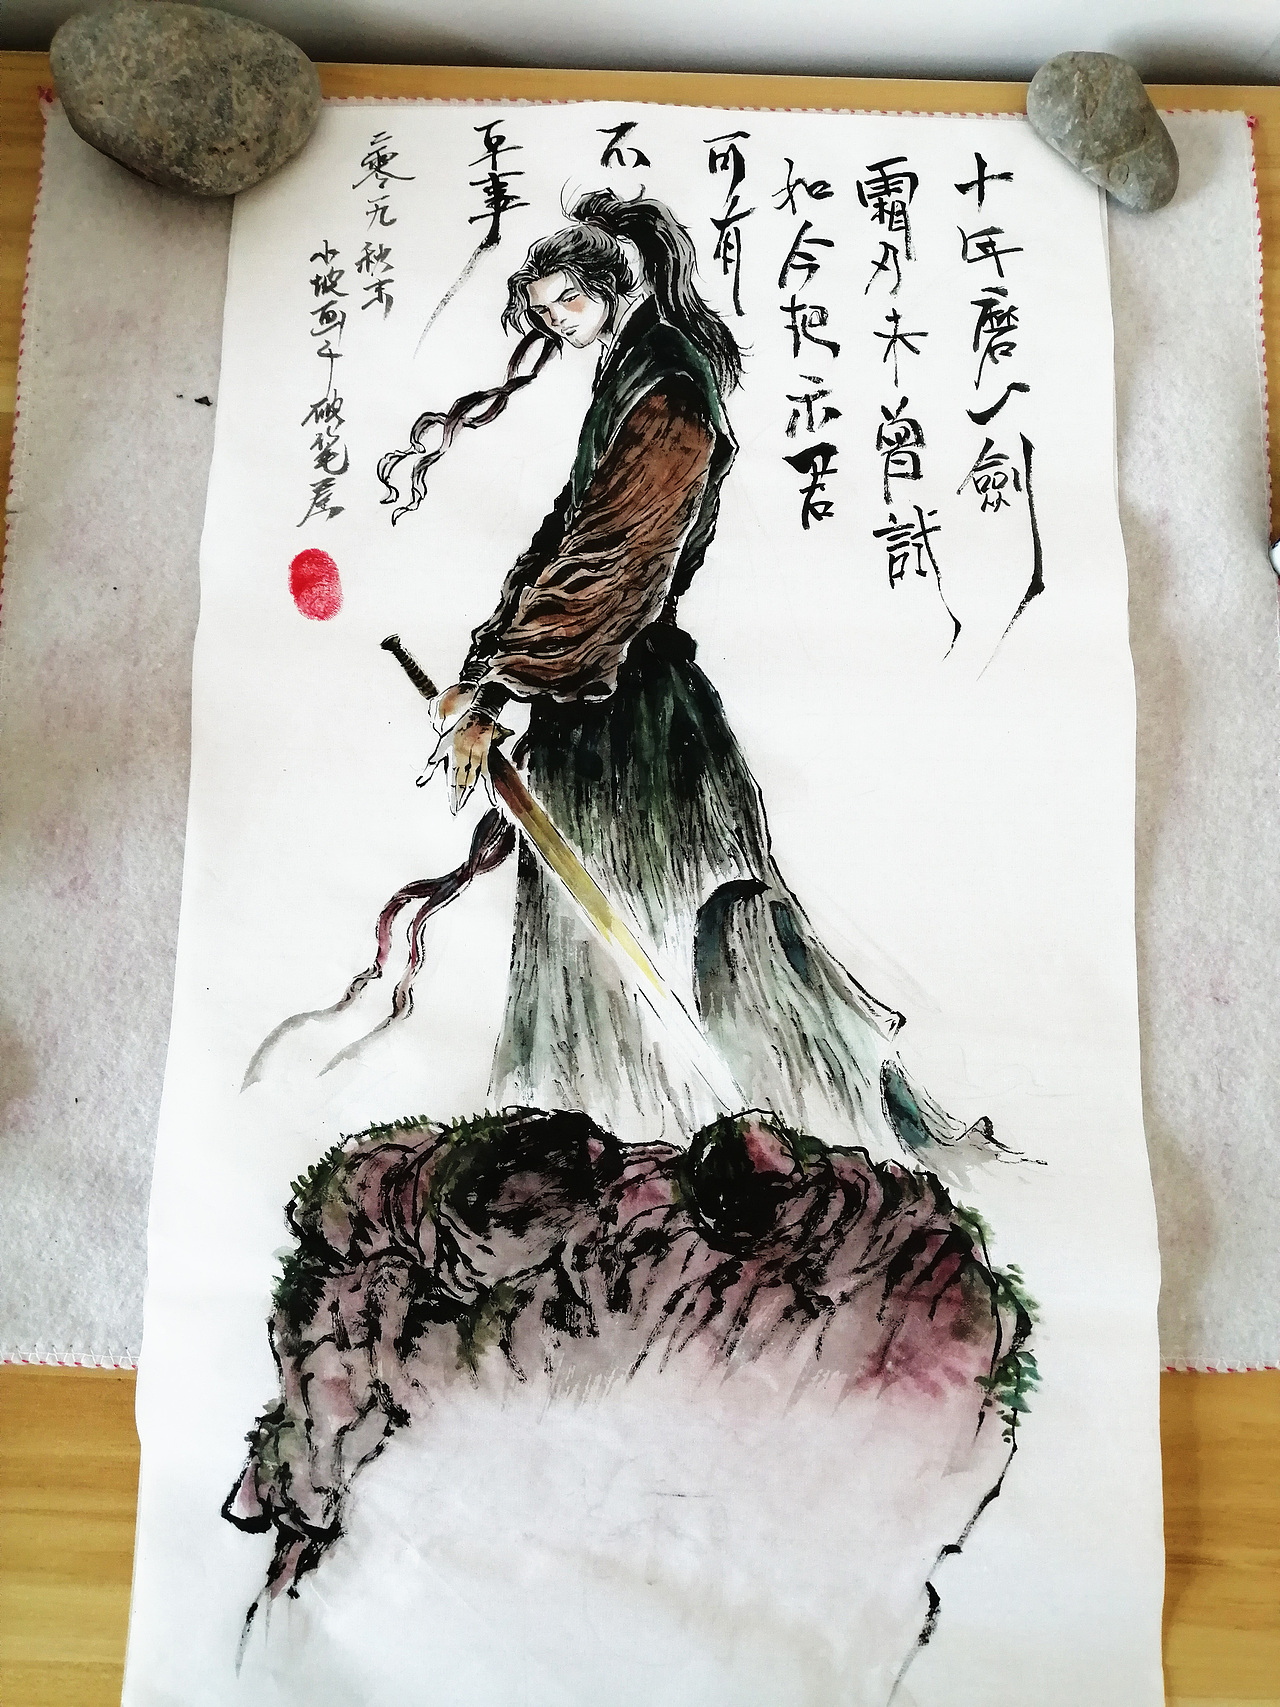 十年磨一劍
霜刃未曾試
如今把示君
可有
不
平事
二零一九秋末
小坡画于破笔